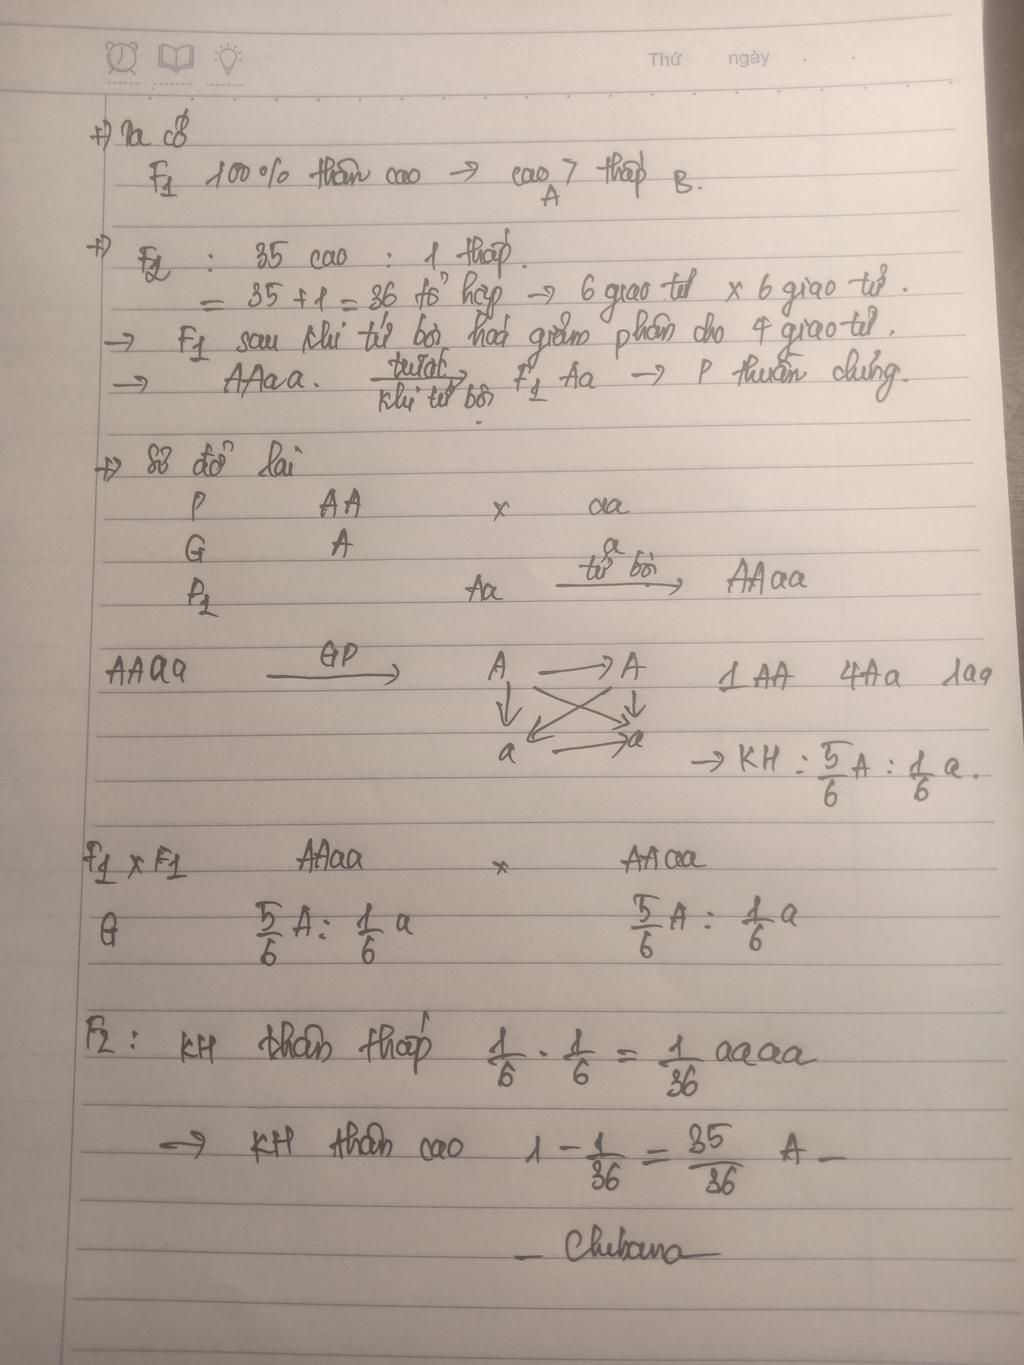 Thứ ngày
+) Ta có
F1 100% thân cao → cao > thấp B.
A
+) F2 : 35 cao : 1 thấp.
= 35 + 1 = 36 tổ hợp → 6 giao tử x 6 giao tử.
→ F1 sau khi tứ bội hoá giảm phân cho 4 giao tử.
→ AAaa. trước khi tứ bội F1 Aa → P thuần chủng.
+) Sơ đồ lai
P AA x aa
G A a
F1 Aa tứ bội → AAaa
AAaa GP → A → A 1AA 4Aa 1aa
a → a → KH : 5/6 A : 1/6 a.
F1 x F1 AAaa x AAaa
G 5/6 A : 1/6 a 5/6 A : 1/6 a
F2 : KH thân thấp 1/6 . 1/6 = 1/36 aaaa
→ KH thân cao 1 - 1/36 = 35/36 A -